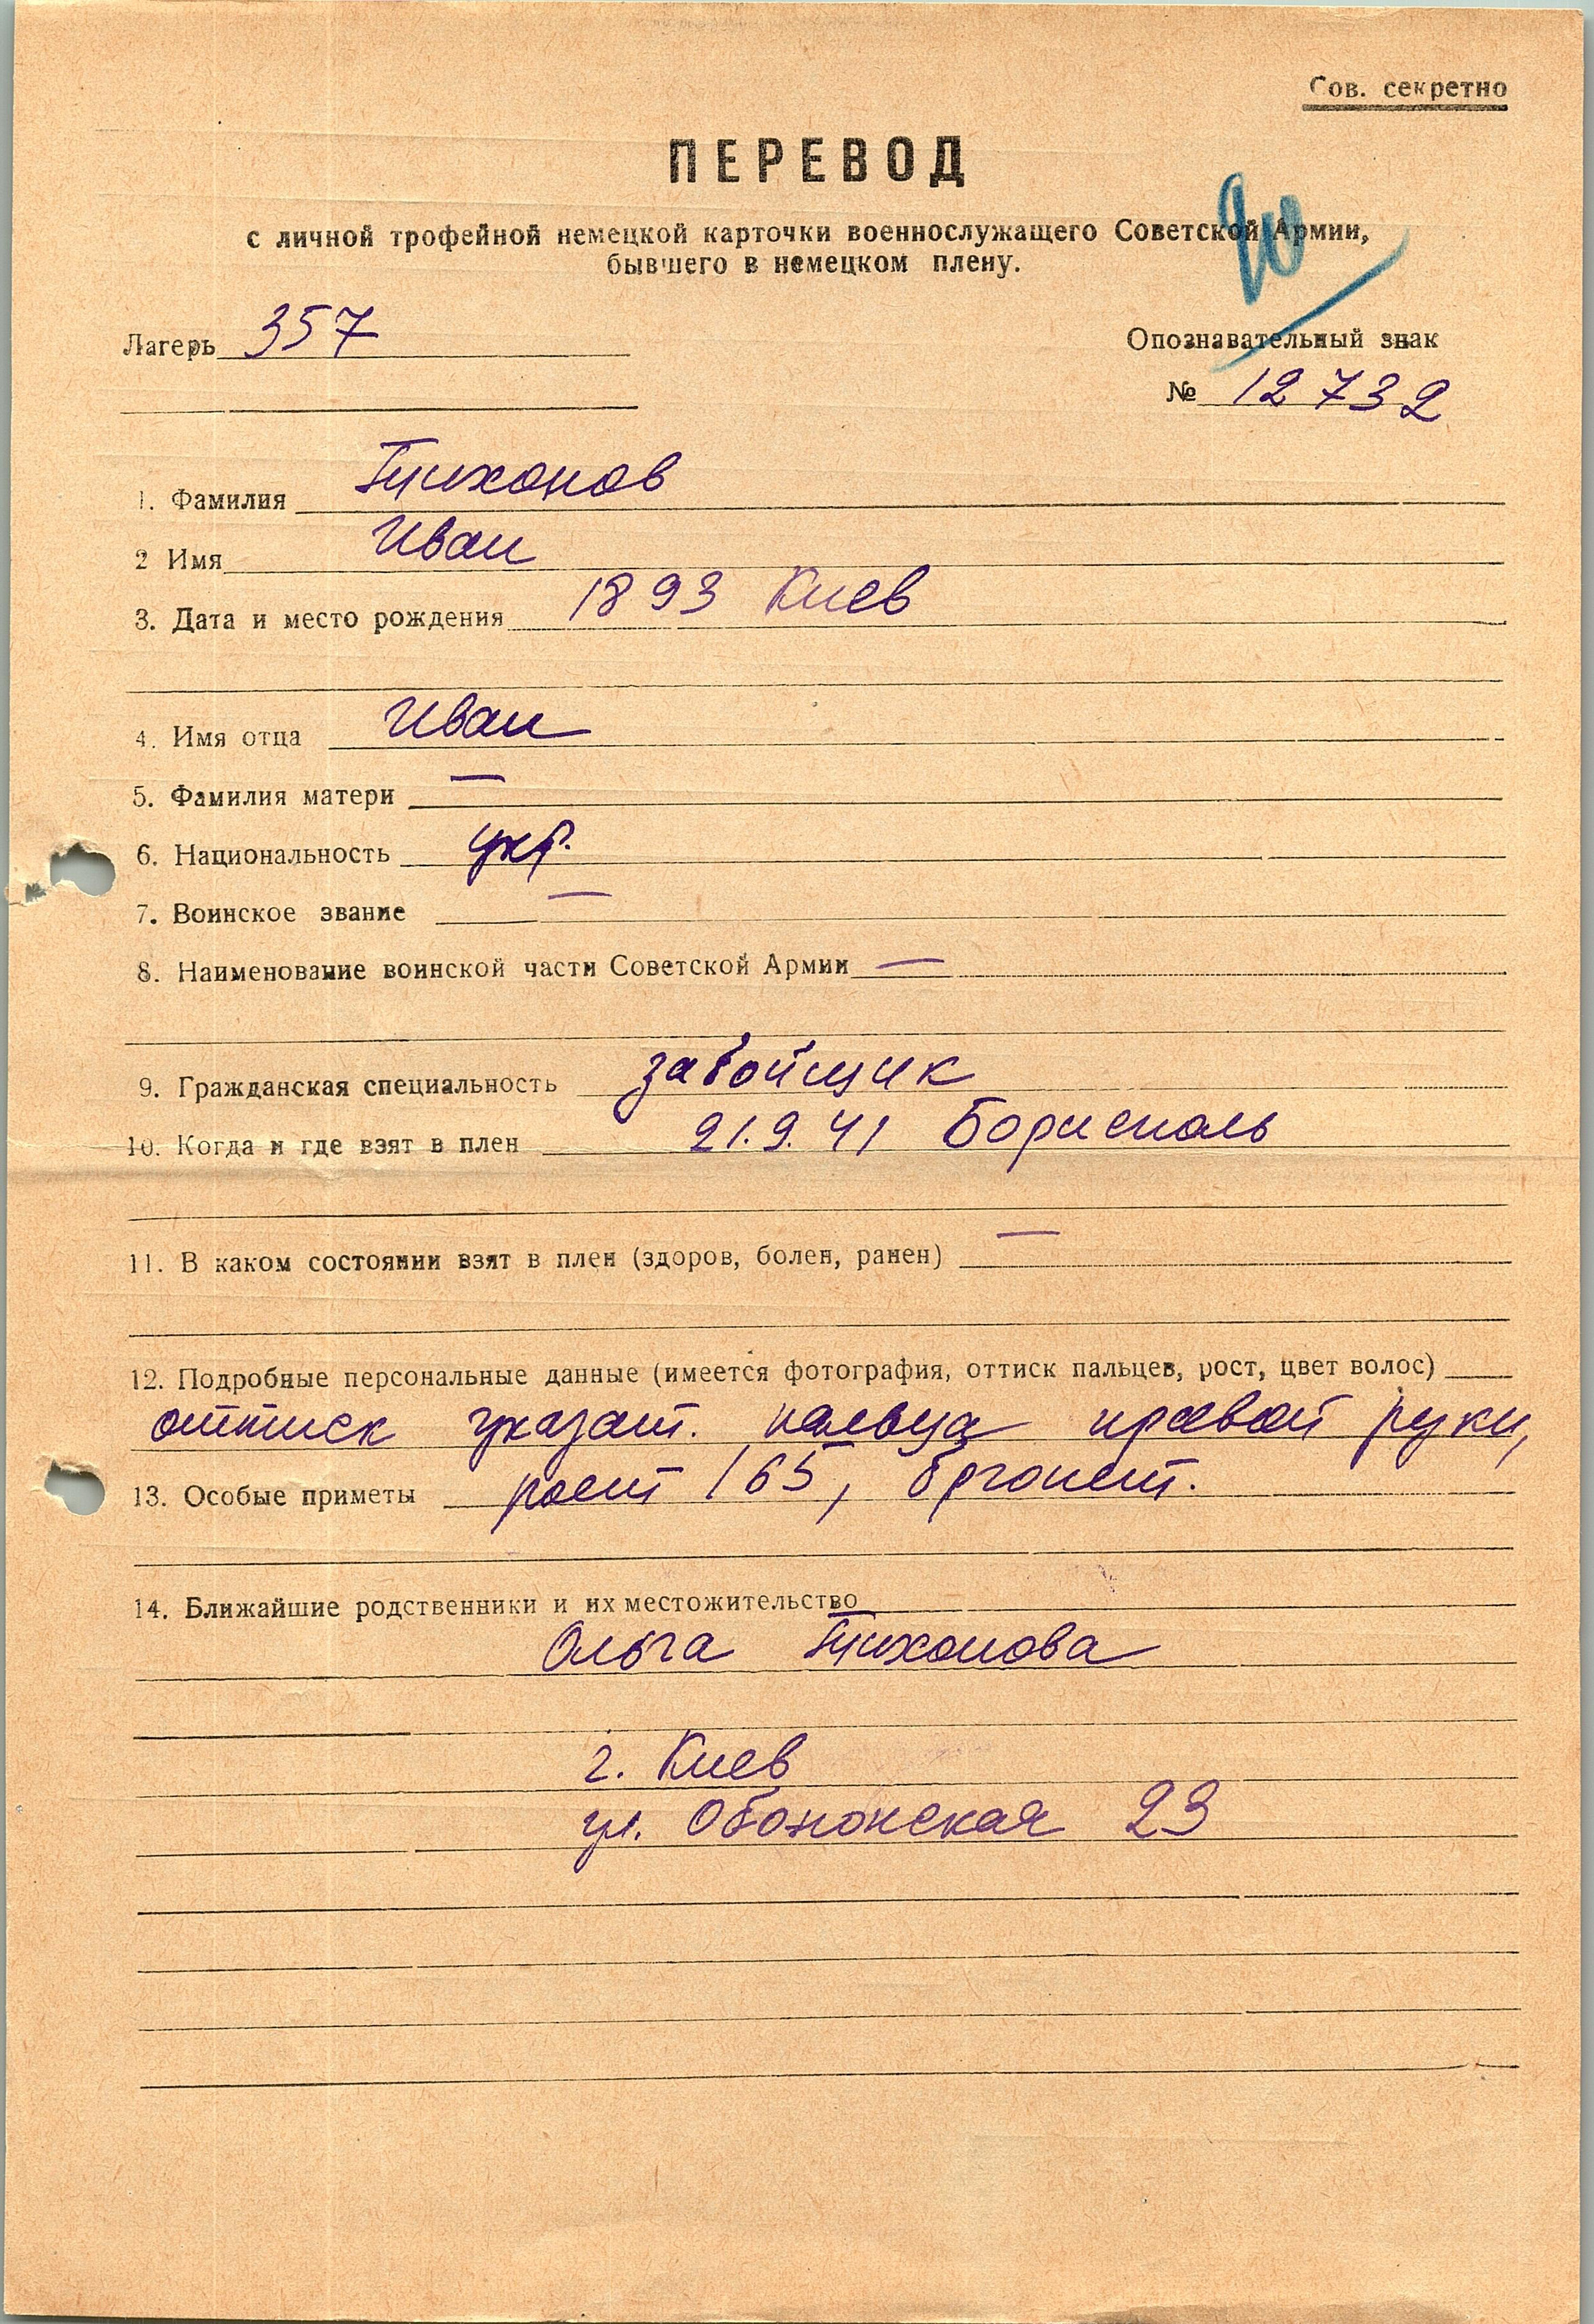 Сов. секретно
ПЕРЕВОД
с личной трофейной немецкой карточки военнослужащего Советской Армии,
бывшего в немецком плену.
20
Лагерь 357
Опознавательный знак
№ 12732
1. Фамилия Тихонов
2 Имя Иван
3. Дата и место рождения 1893 Киев
4. Имя отца Иван
5. Фамилия матери —
6. Национальность укр.
7. Воинское звание —
8. Наименование воинской части Советской Армии —
9. Гражданская специальность забойщик
10. Когда и где взят в плен 21.9.41 Борисполь
11. В каком состоянии взят в плен (здоров, болен, ранен) —
12. Подробные персональные данные (имеется фотография, оттиск пальцев, рост, цвет волос)
оттиск указат. пальца правой руки,
13. Особые приметы рост 165, брюнет.
14. Ближайшие родственники и их местожительство
Ольга Тихонова
г. Киев
ул. Оболонская 23